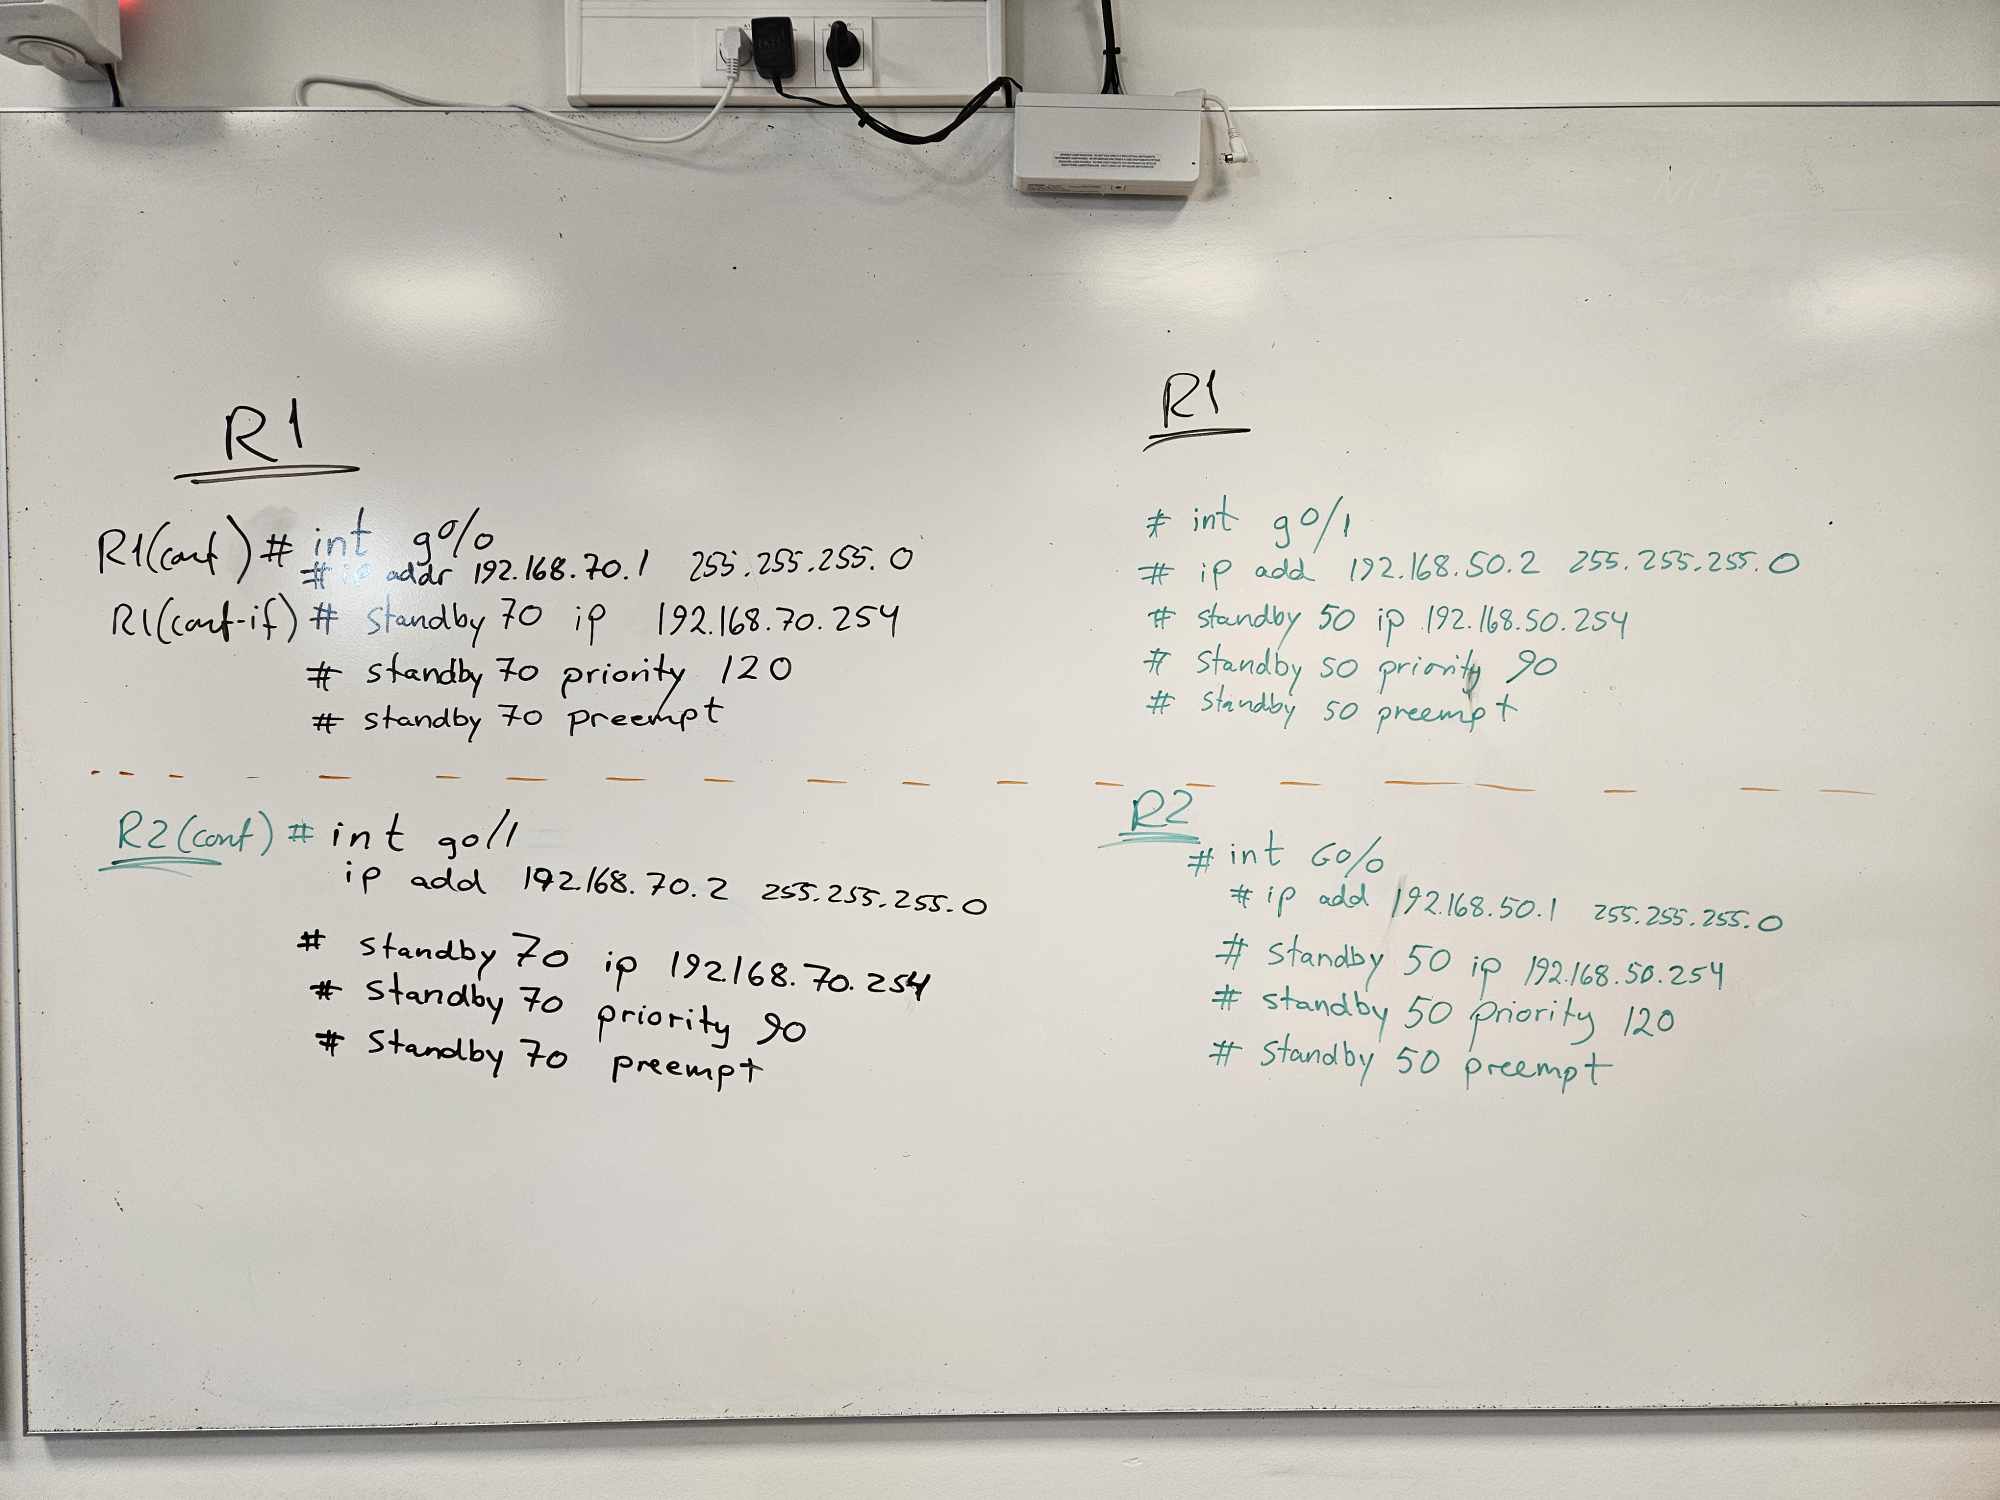 R1
R1(conf)# int g0/0
# ip addr 192.168.70.1 255.255.255.0
R1(conf-if)# standby 70 ip 192.168.70.254
# standby 70 priority 120
# standby 70 preempt
R1
# int g0/1
# ip add 192.168.50.2 255.255.255.0
# standby 50 ip 192.168.50.254
# standby 50 priority 90
# standby 50 preempt
R2(conf)# int go/1
ip add 192.168.70.2 255.255.255.0
# standby 70 ip 192.168.70.254
# standby 70 priority 90
# standby 70 preempt
R2
# int G0/0
# ip add 192.168.50.1 255.255.255.0
# standby 50 ip 192.168.50.254
# standby 50 priority 120
# standby 50 preempt